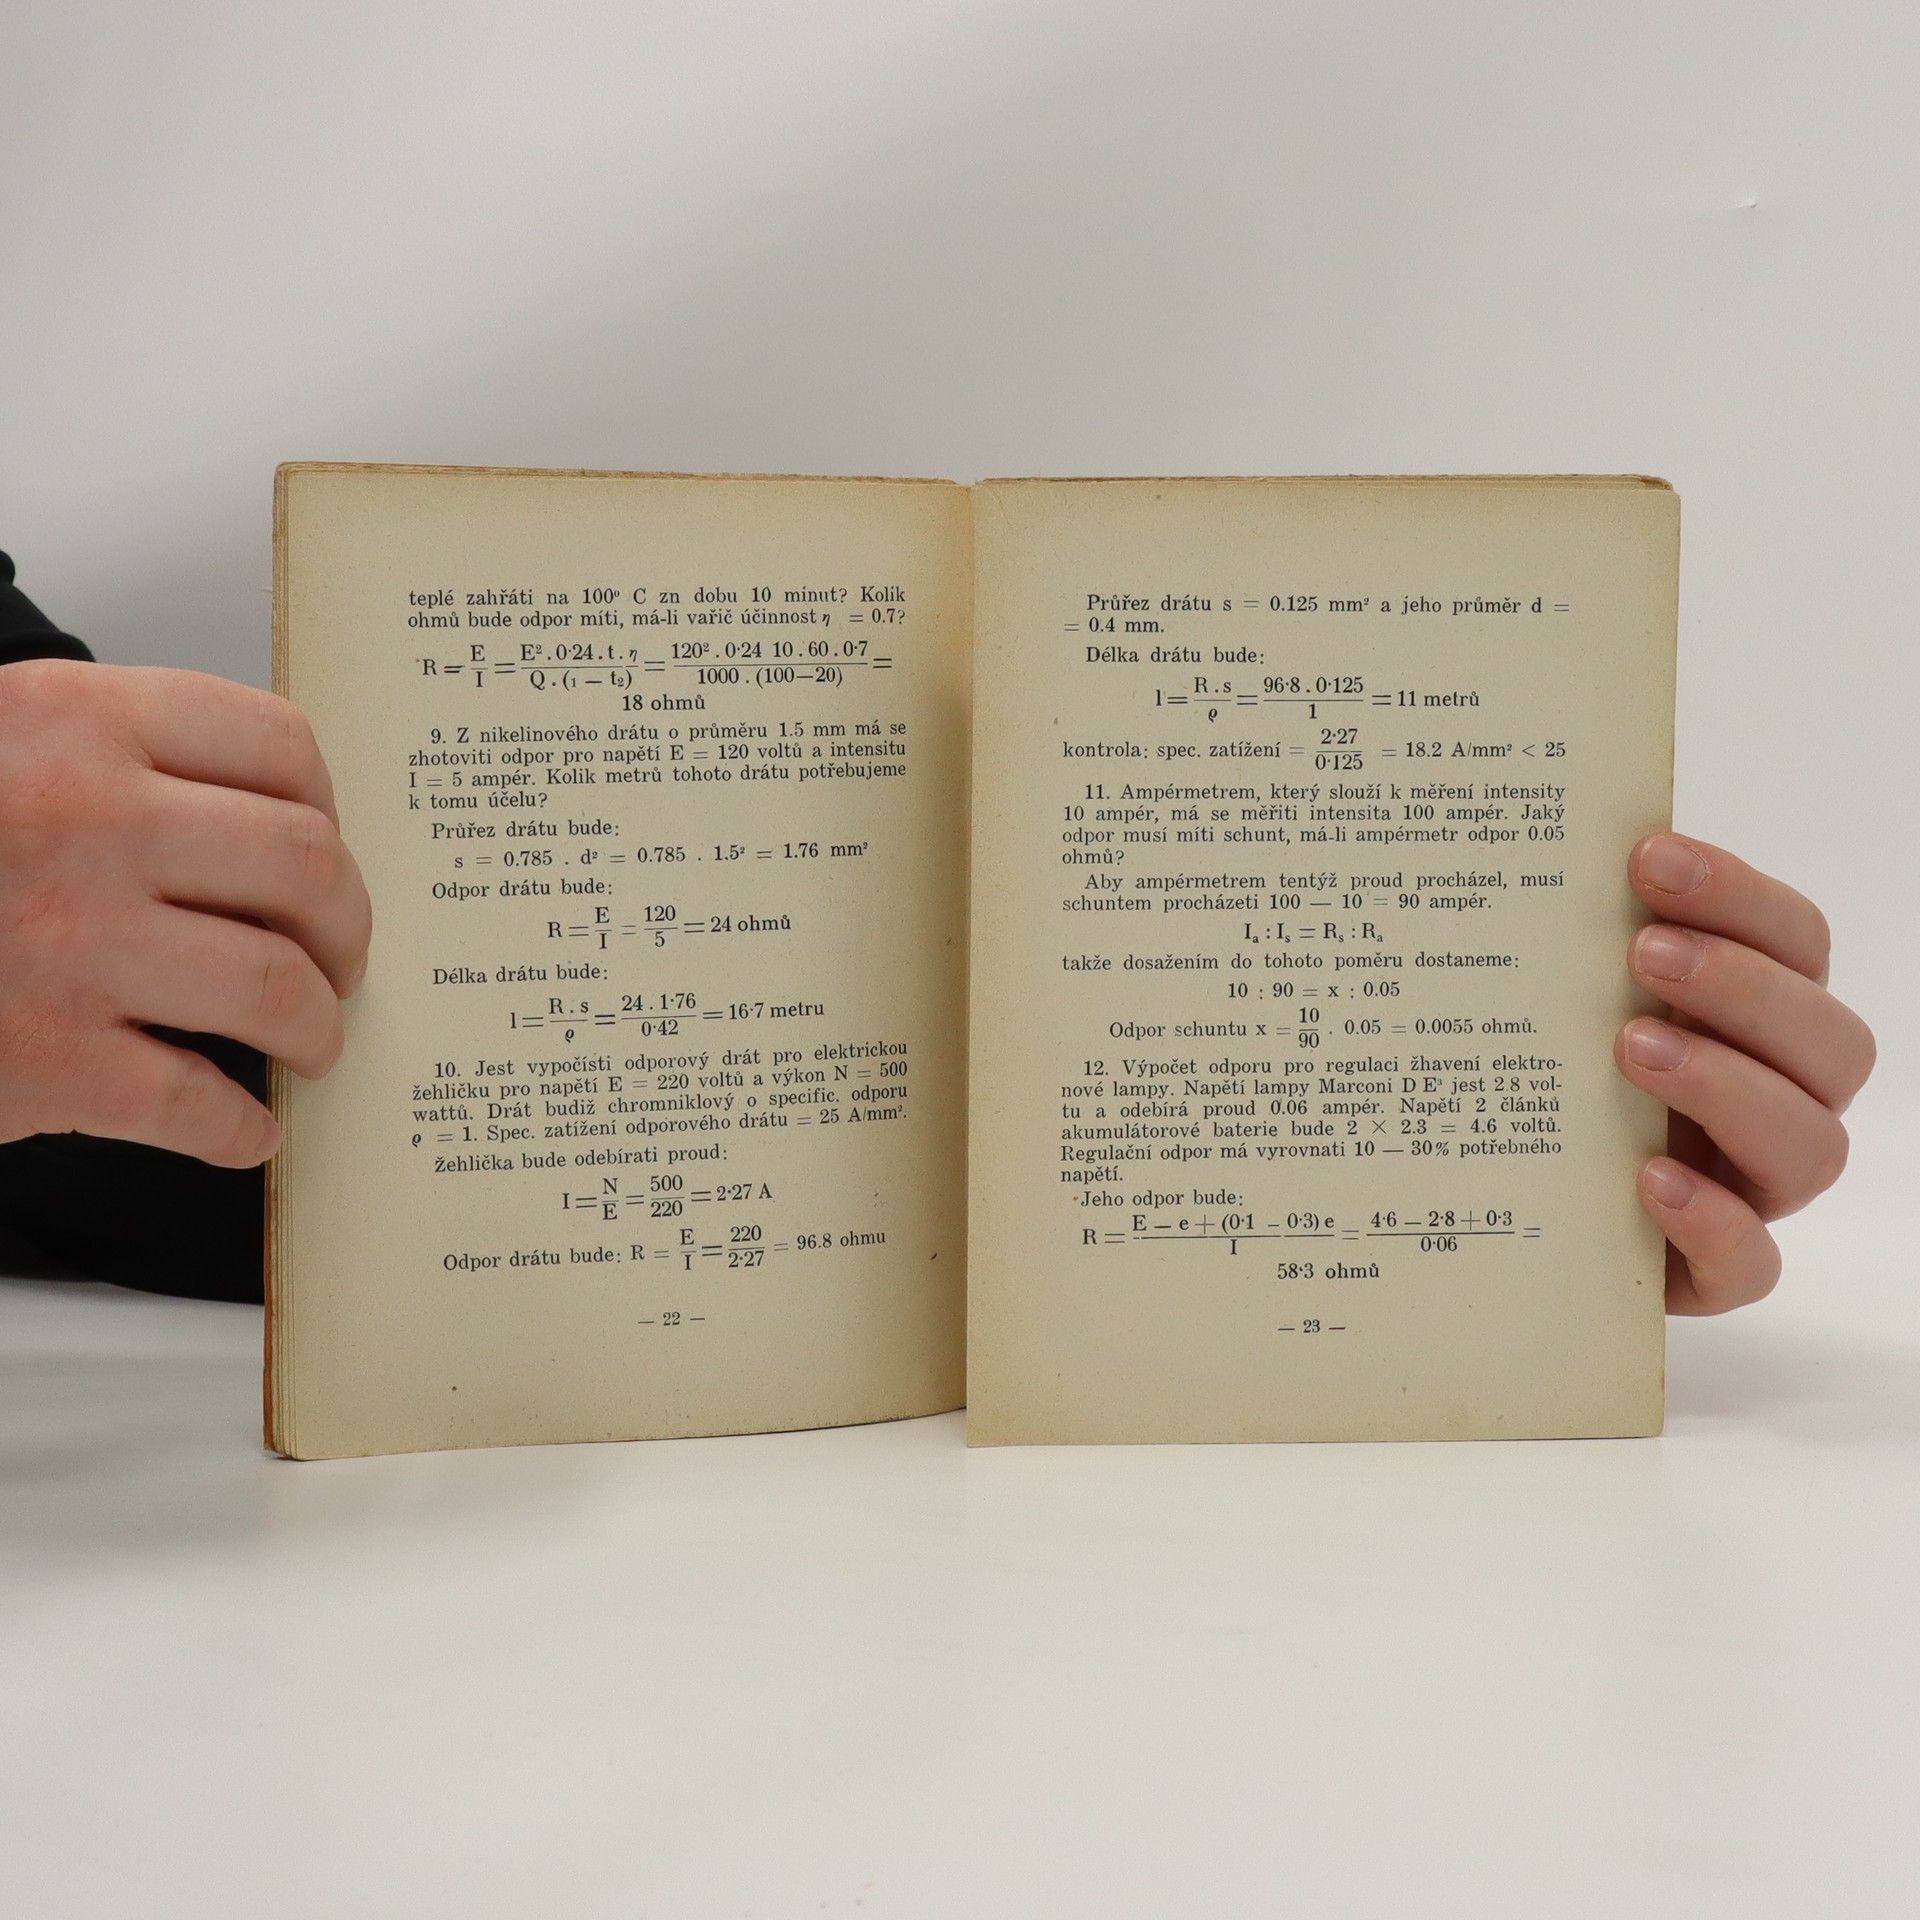 teplé zahřáti na 100⁰ C zn dobu 10 minut? Kolik
ohmů bude odpor míti, má-li vařič účinnost η = 0.7?
R = E/I = E² . 0·24 . t . η / Q . (₁ — t₂) = 120² . 0·24 10 . 60 . 0·7 / 1000 . (100—20) =
18 ohmů
9. Z nikelinového drátu o průměru 1.5 mm má se
zhotoviti odpor pro napětí E = 120 voltů a intensitu
I = 5 ampér. Kolik metrů tohoto drátu potřebujeme
k tomu účelu?
Průřez drátu bude:
s = 0.785 . d² = 0.785 . 1.5² = 1.76 mm²
Odpor drátu bude:
R = E/I = 120/5 = 24 ohmů
Délka drátu bude:
l = R . s / ϱ = 24 . 1·76 / 0·42 = 16·7 metru
10. Jest vypočísti odporový drát pro elektrickou
žehličku pro napětí E = 220 voltů a výkon N = 500
wattů. Drát budiž chromniklový o specific. odporu
ϱ = 1. Spec. zatížení odporového drátu = 25 A/mm².
Žehlička bude odebírati proud:
I = N/E = 500/220 = 2·27 A
Odpor drátu bude: R = E/I = 220/2·27 = 96.8 ohmu
— 22 —
Průřez drátu s = 0.125 mm² a jeho průměr d =
= 0.4 mm.
Délka drátu bude:
l = R . s / ϱ = 96·8 . 0·125 / 1 = 11 metrů
kontrola: spec. zatížení = 2·27/0·125 = 18.2 A/mm² < 25
11. Ampérmetrem, který slouží k měření intensity
10 ampér, má se měřiti intensita 100 ampér. Jaký
odpor musí míti schunt, má-li ampérmetr odpor 0.05
ohmů?
Aby ampérmetrem tentýž proud procházel, musí
schuntem procházeti 100 — 10 = 90 ampér.
Iₐ : Iₛ = Rₛ : Rₐ
takže dosažením do tohoto poměru dostaneme:
10 : 90 = x : 0.05
Odpor schuntu x = 10/90 . 0.05 = 0.0055 ohmů.
12. Výpočet odporu pro regulaci žhavení elektro-
nové lampy. Napětí lampy Marconi D E³ jest 2.8 vol-
tu a odebírá proud 0.06 ampér. Napětí 2 článků
akumulátorové baterie bude 2 × 2.3 = 4.6 voltů.
Regulační odpor má vyrovnati 10 — 30% potřebného
napětí.
Jeho odpor bude:
R = E — e + (0·1 – 0·3) e / I = 4·6 — 2·8 + 0·3 / 0·06 =
58·3 ohmů
— 23 —